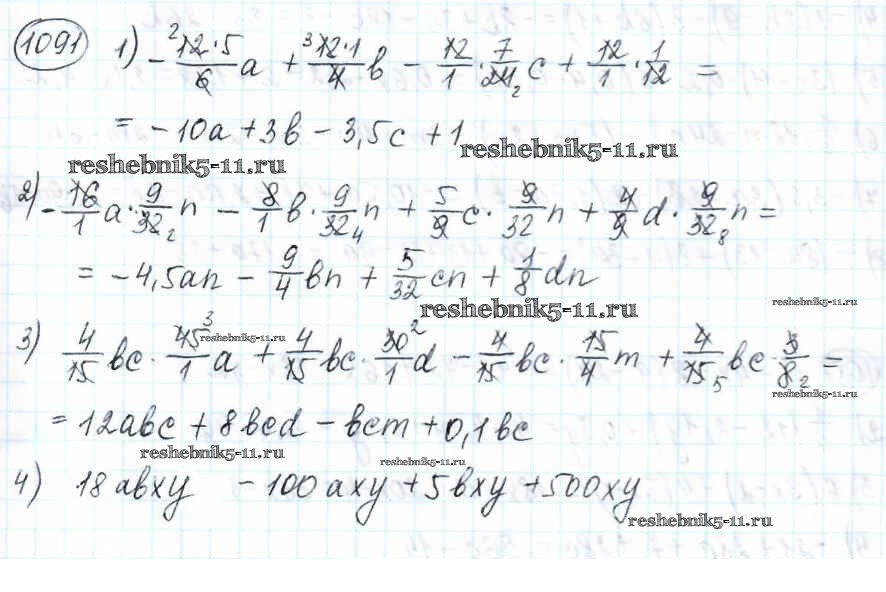 1091 1) - 12·5/6 a + 12·1/4 b - 12/1 · 7/24 c + 12/1 · 1/12 =
= - 10a + 3b - 3,5c + 1
reshebnik5-11.ru reshebnik5-11.ru
2) - 16/1 a · 9/32 n - 8/1 b · 9/32 n + 5/9 c · 9/32 n + 4/9 d · 9/32 n =
= - 4,5an - 9/4 bn + 5/32 cn + 1/8 dn
reshebnik5-11.ru reshebnik5-11.ru
3) 4/15 bc · 45/1 a + 4/15 bc · 30/1 d - 4/15 bc · 15/4 m + 4/15 bc · 3/8 =
reshebnik5-11.ru reshebnik5-11.ru
= 12abc + 8bcd - bcm + 0,1bc
reshebnik5-11.ru reshebnik5-11.ru
4) 18abxy - 100axy + 5bxy + 500xy
reshebnik5-11.ru